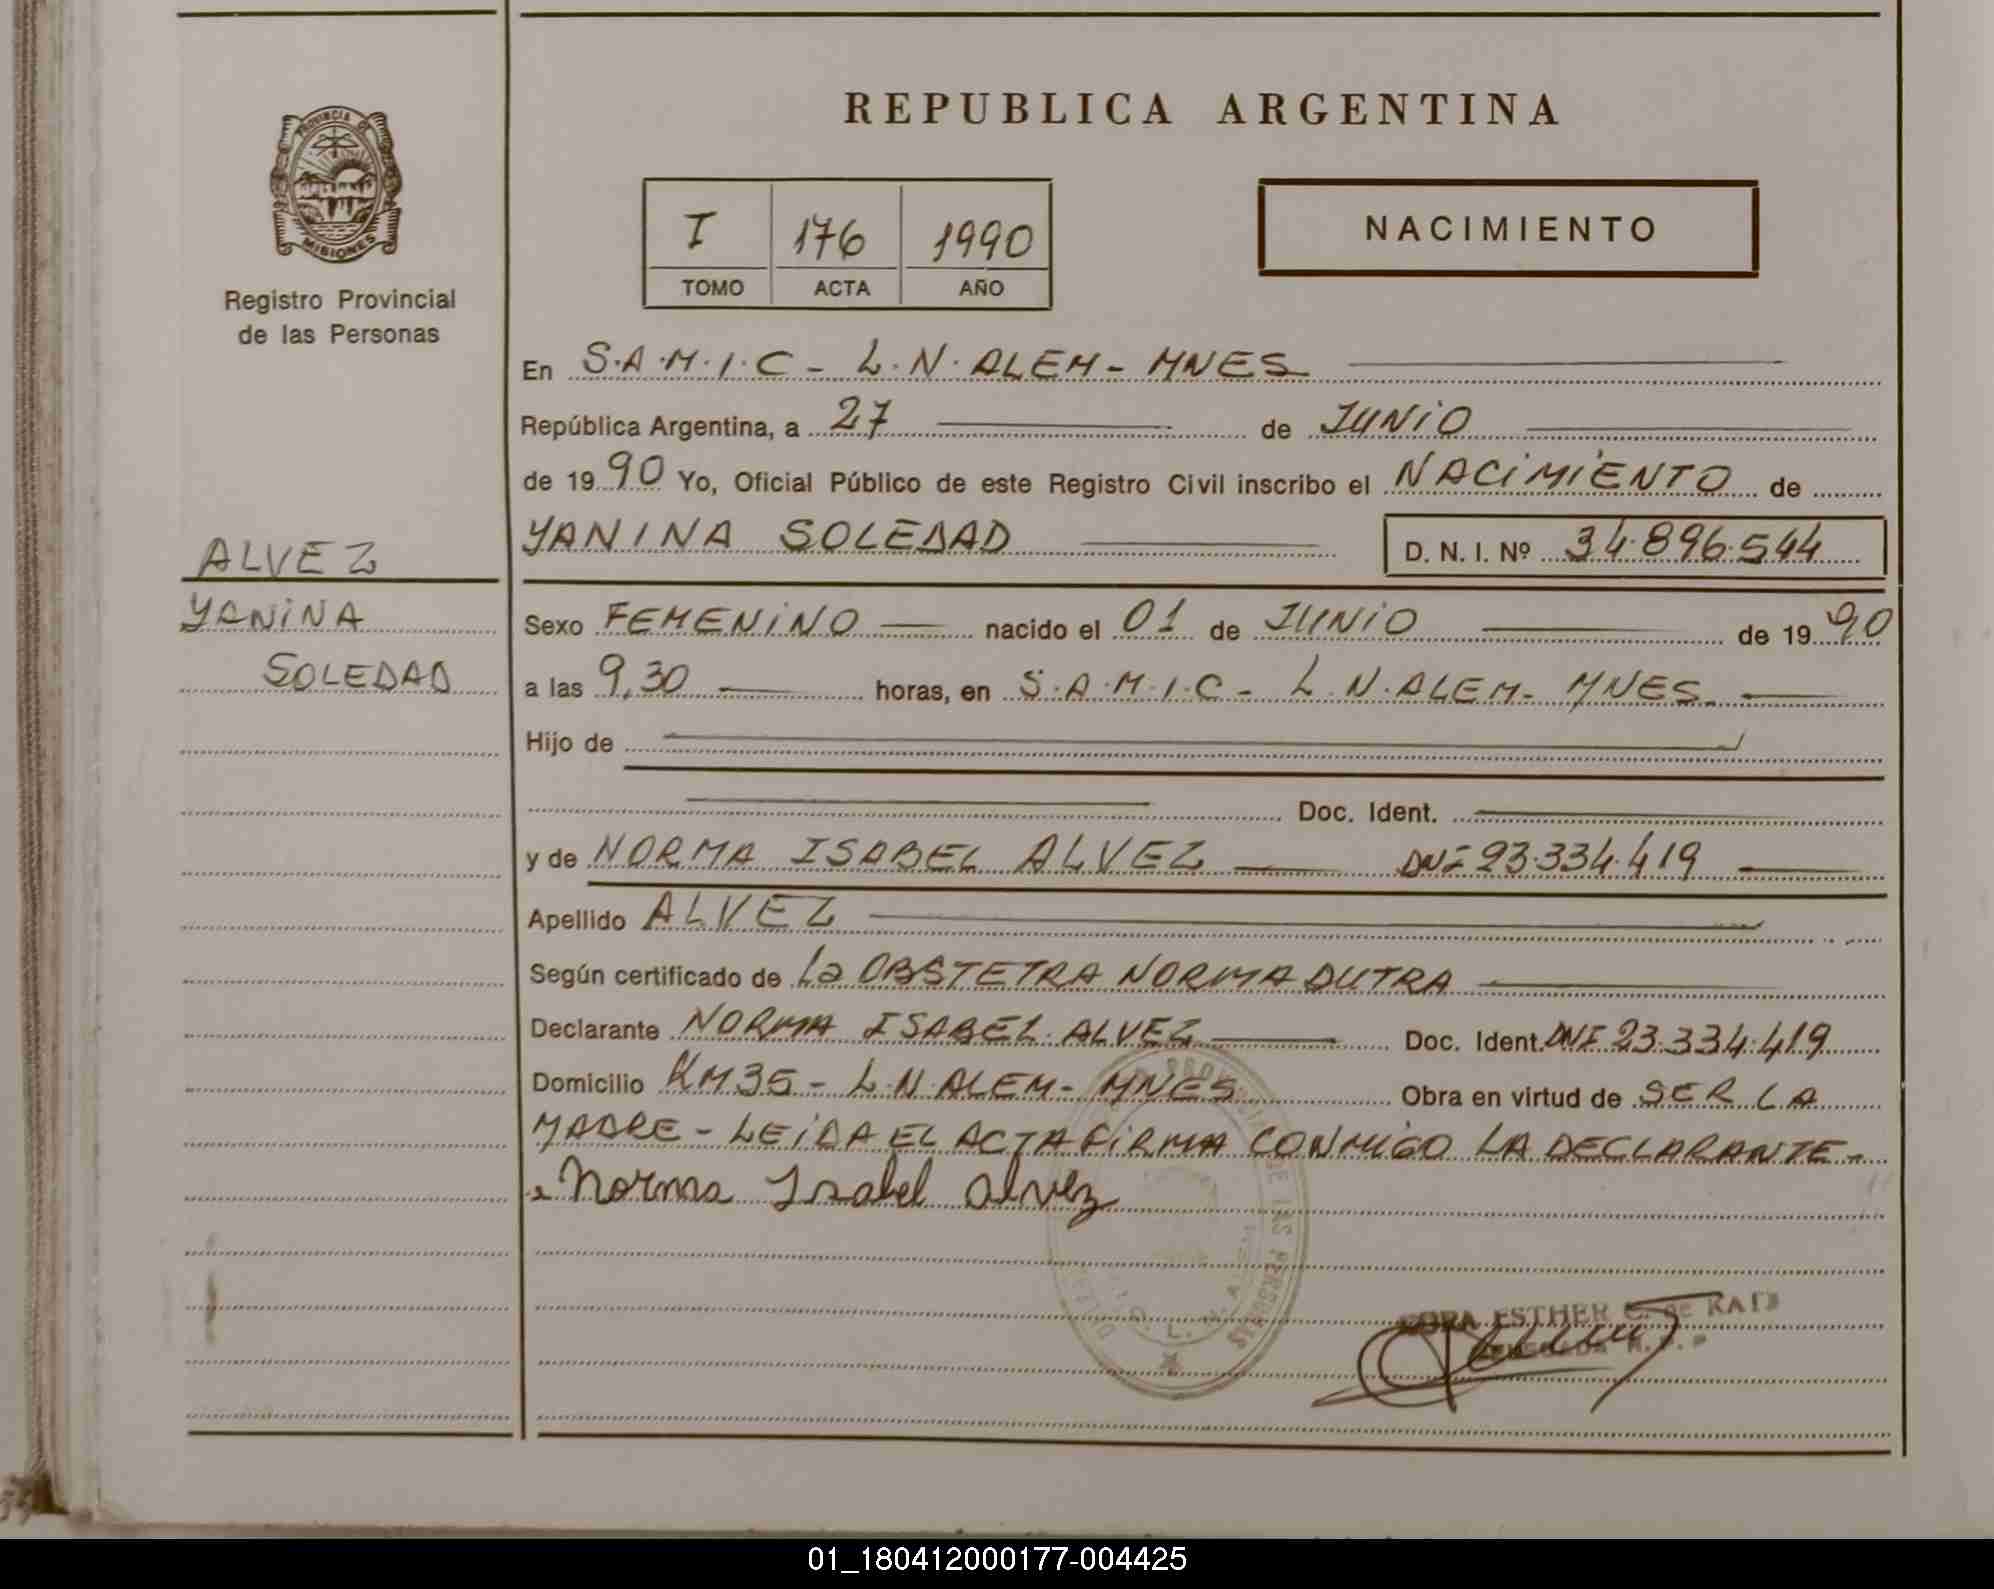 REPUBLICA ARGENTINA
PROVINCIA DE
MISIONES
Registro Provincial
de las Personas
I 176 1990
TOMO ACTA AÑO
NACIMIENTO
En S.A.M.I.C - L.N. ALEM - MNES
República Argentina, a 27 de JUNIO
de 1990 Yo, Oficial Público de este Registro Civil inscribo el NACIMIENTO de
YANINA SOLEDAD D. N. I. Nº 34.896.544
ALVEZ
YANINA
SOLEDAD
Sexo FEMENINO nacido el 01 de JUNIO de 1990
a las 9,30 horas, en S.A.M.I.C - L.N. ALEM - MNES.
Hijo de
Doc. Ident.
y de NORMA ISABEL ALVEZ DNI 23.334.419
Apellido ALVEZ
Según certificado de La OBSTETRA NORMA DUTRA
Declarante NORMA ISABEL ALVEZ Doc. Ident. DNI 23.334.419
Domicilio KM 35 - L.N. ALEM - MNES Obra en virtud de SER LA
MADRE - LEIDA EL ACTA FIRMA CONMIGO LA DECLARANTE -
Norma Isabel Alvez
DE LAS PERSONAS
ESTHER C. de
01_180412000177-004425